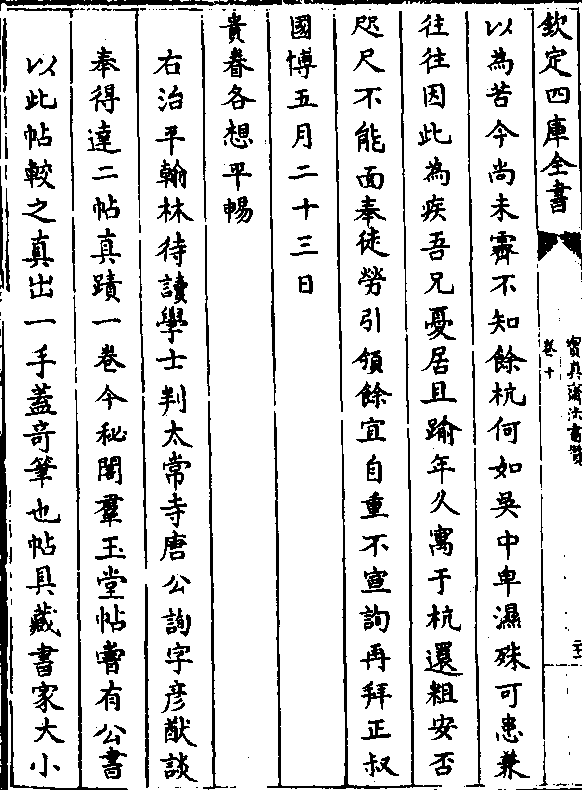 欽定四庫全書
寶真齋法書贊
卷十
以為苦今尚未霽不知餘杭何如吳中卑濕殊可患兼
往往因此為疾吾兄憂居且踰年久寓于杭還粗安否
咫尺不能面奉徒勞引領餘宜自重不宣詢再拜正叔
國博五月二十三日
貴眷各想平暢
右治平翰林待讀學士判太常寺唐公詢字彥猷談
奉得達二帖真蹟一卷今秘閣羣玉堂帖嘗有公書
以此帖較之真出一手蓋奇筆也帖具藏書家大小